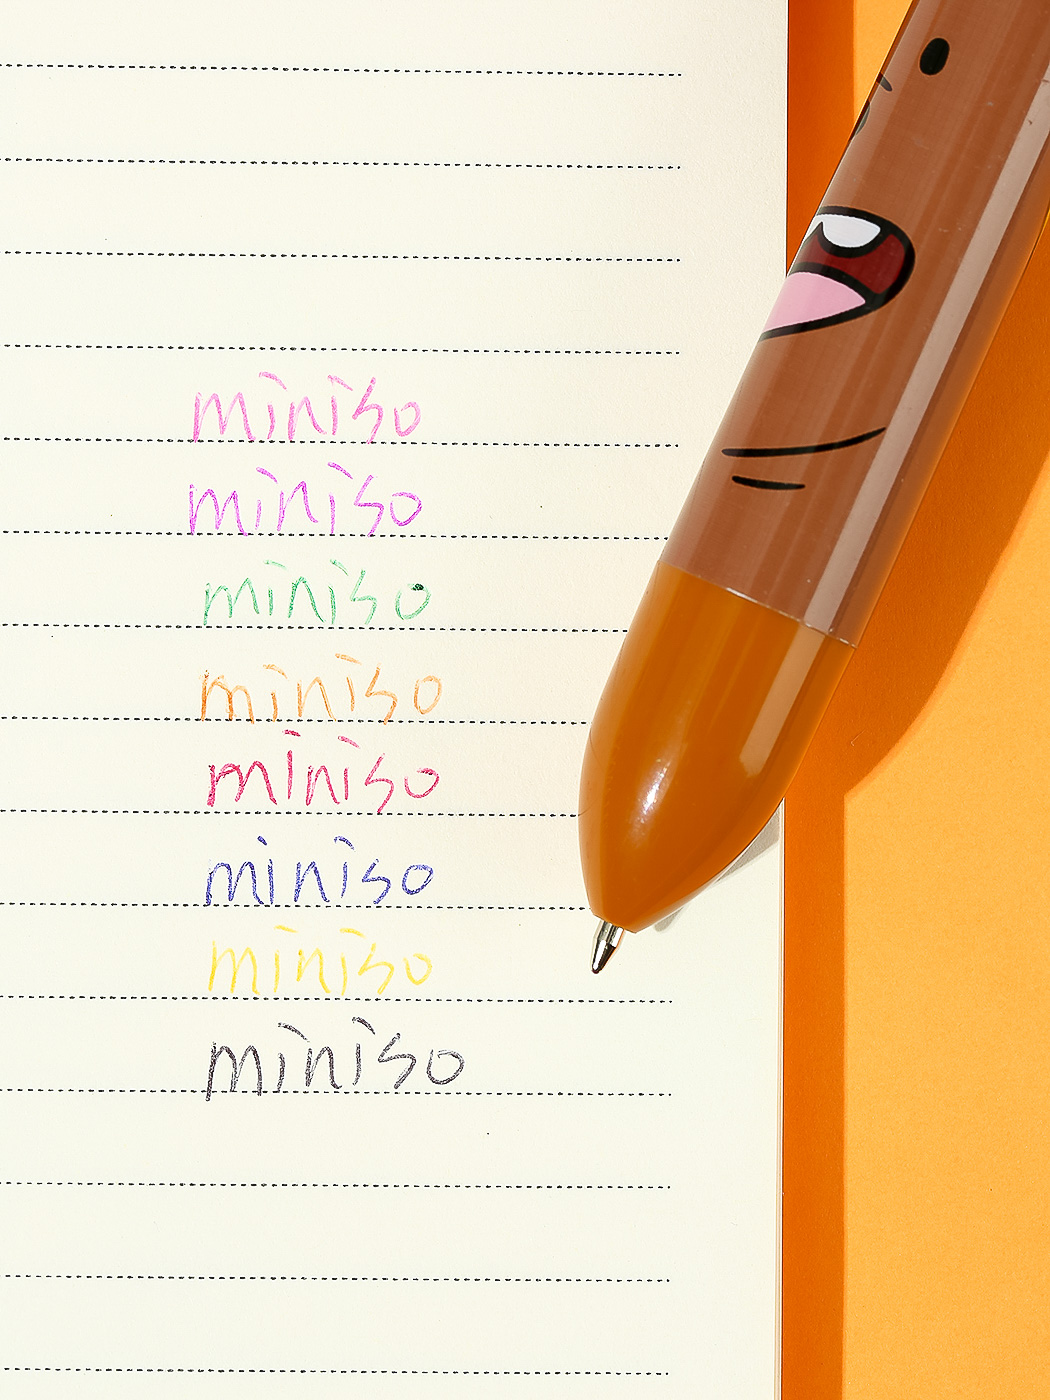 miniso
miniso
miniso
miniso
miniso
miniso
miniso
miniso